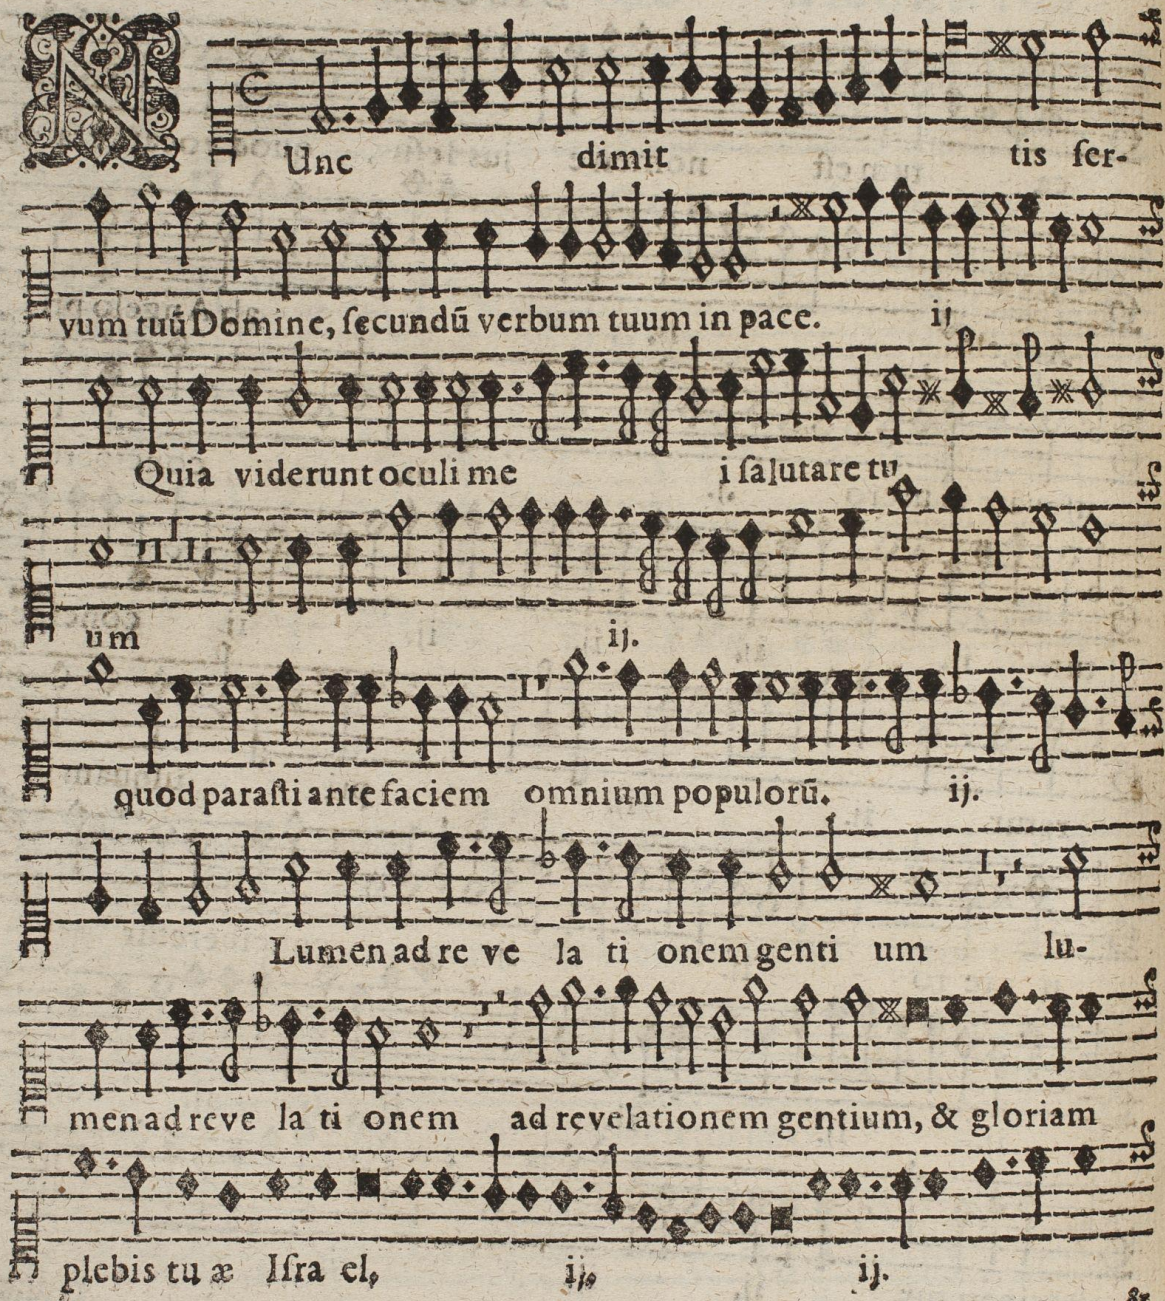 NUnc dimit tis ser-
vum tuū Domine, secundū verbum tuum in pace. ij
Quia viderunt oculi me i salutare tu
um ij.
quod parasti ante faciem omnium populorū. ij.
Lumen ad re ve la ti onem genti um lu-
men ad reve la ti onem ad revelationem gentium, & gloriam
plebis tu æ Israel, ij. ij.
&